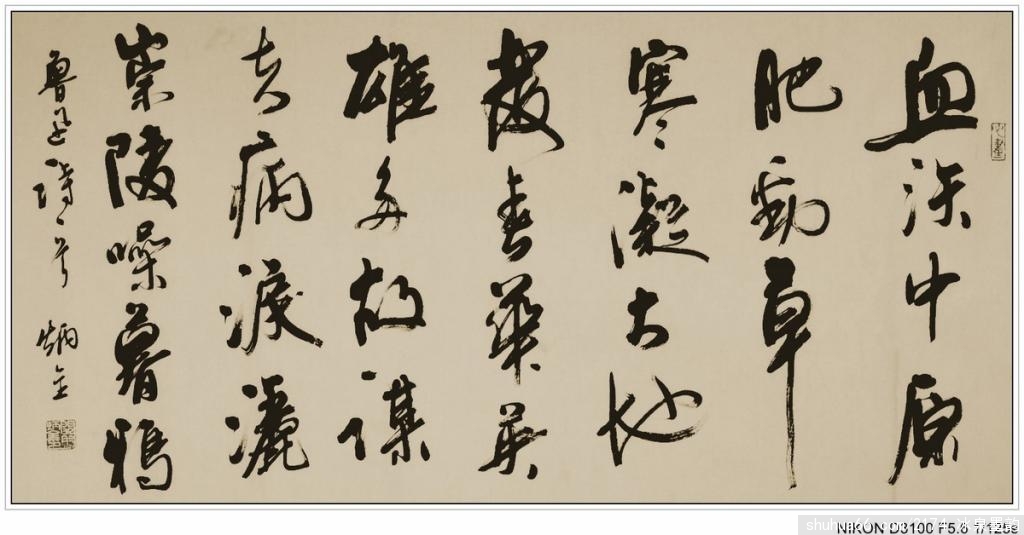 血沃中原
肥勁草
寒凝大地
發春華英
雄多故謀
夫病淚灑
崇陵噪暮鴉
魯迅詩一首 炳全
NIKON D3100 F5.6 1/125s